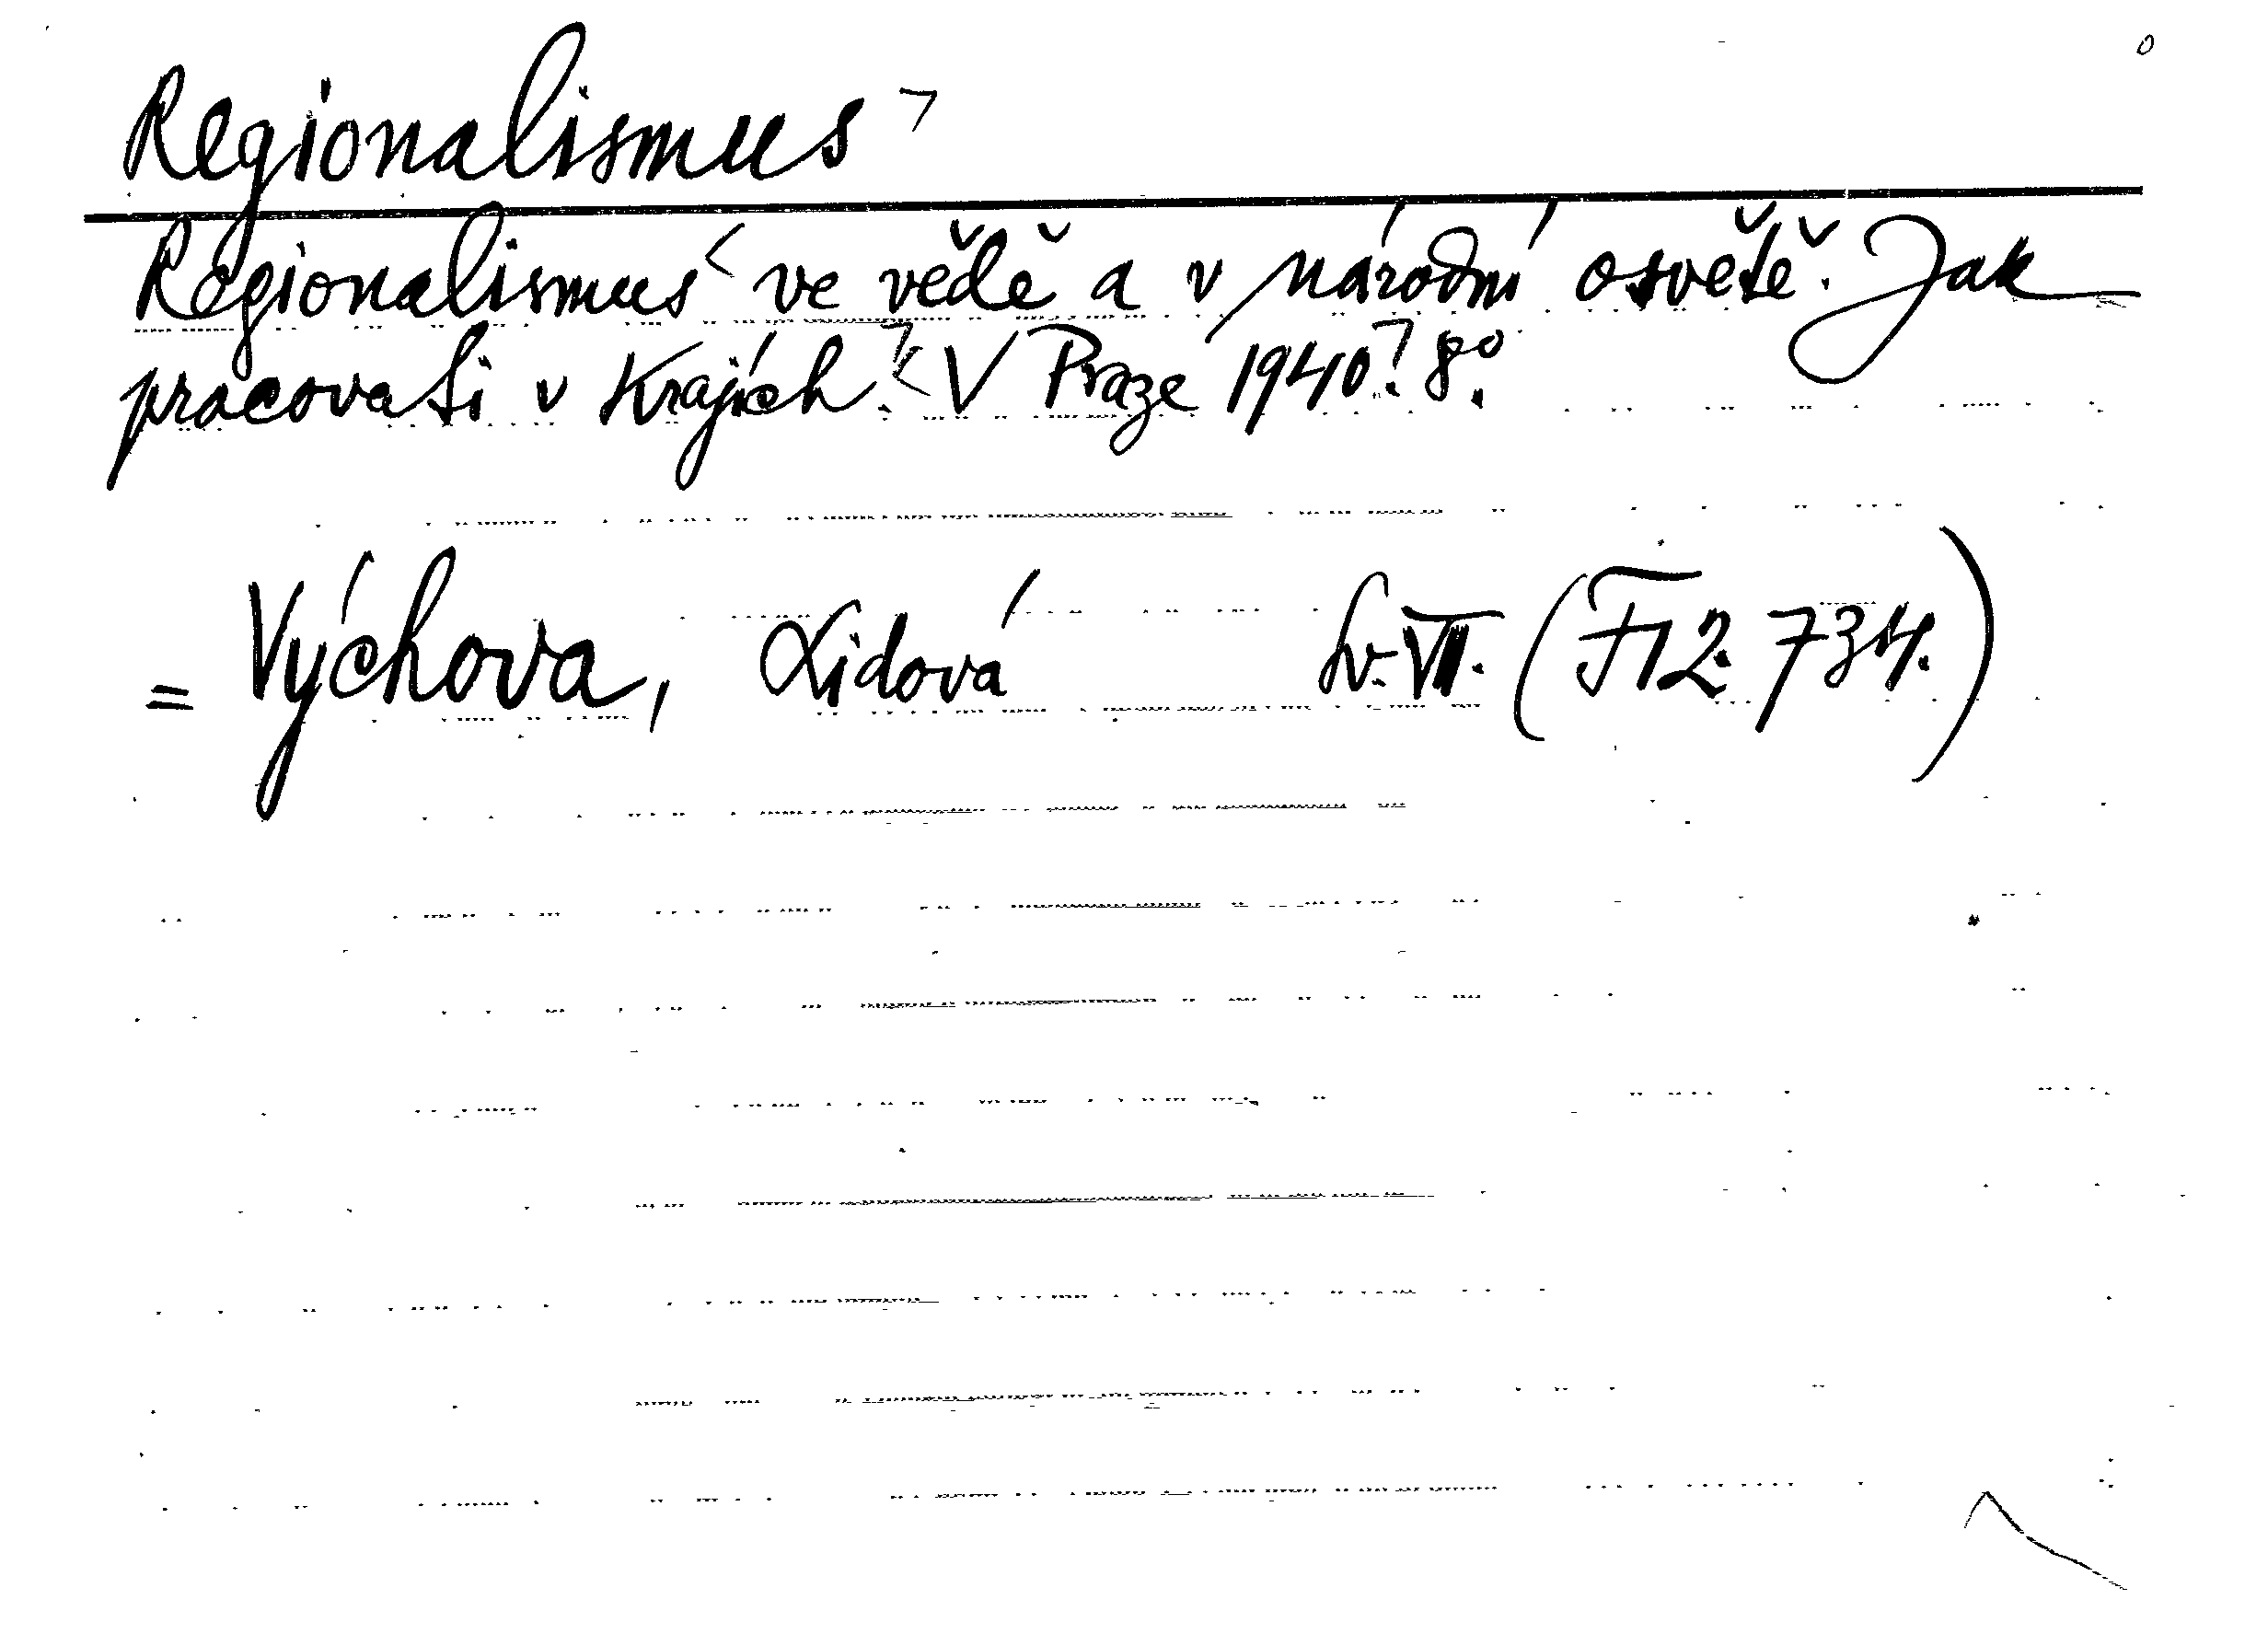 Regionalismus
Regionalismus ve vědě a v národní osvětě. Jak
pracovati v krajích? V Praze 1940. 8°.
= Výchova, Lidová Sv. VII. (F 12.734.)